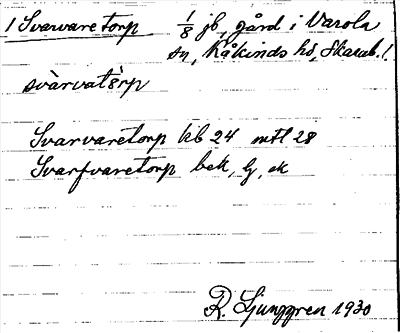 1 Svarvaretorp 1/8 jb, gård i Varola
sn, Kåkinds hd, Skarab. l.
svàrvatå̀rp
Svarvaretorp kb 24 mtl 28
Svarfvaretorp bek, lj, ek
R. Ljunggren 1930